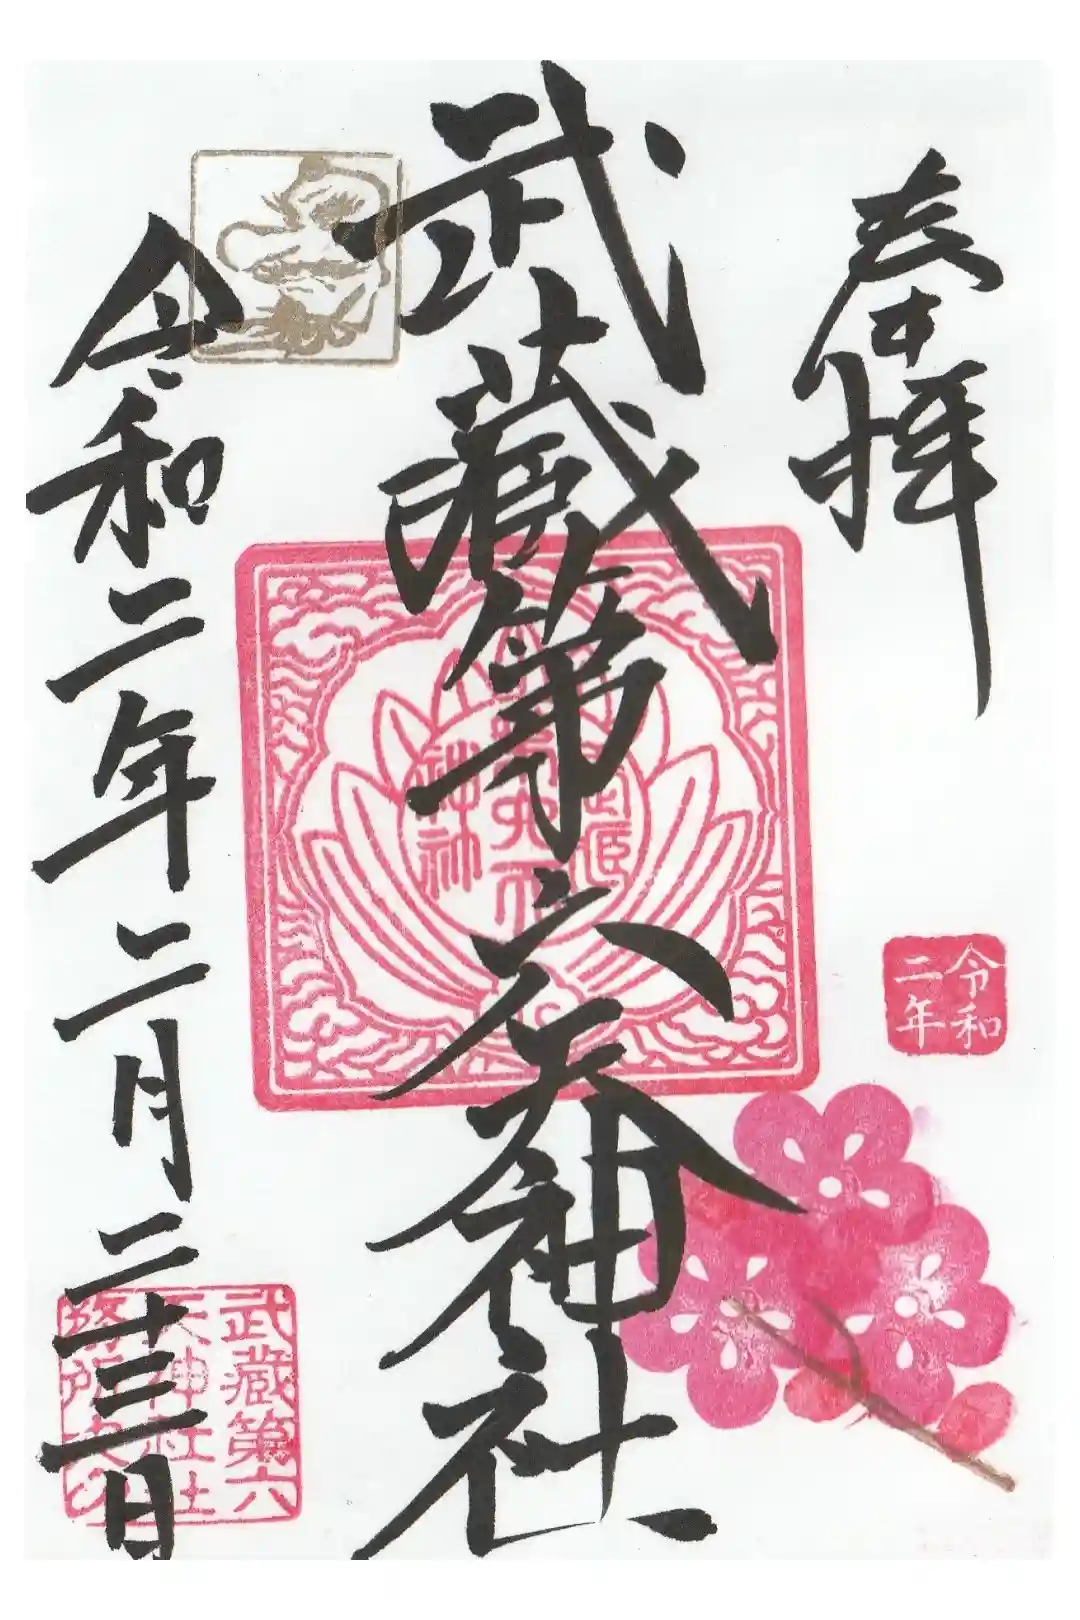 奉拝
武蔵第六天神社
令和二年二月二十三日
令和
二年
武蔵第六
天神社社
務所之